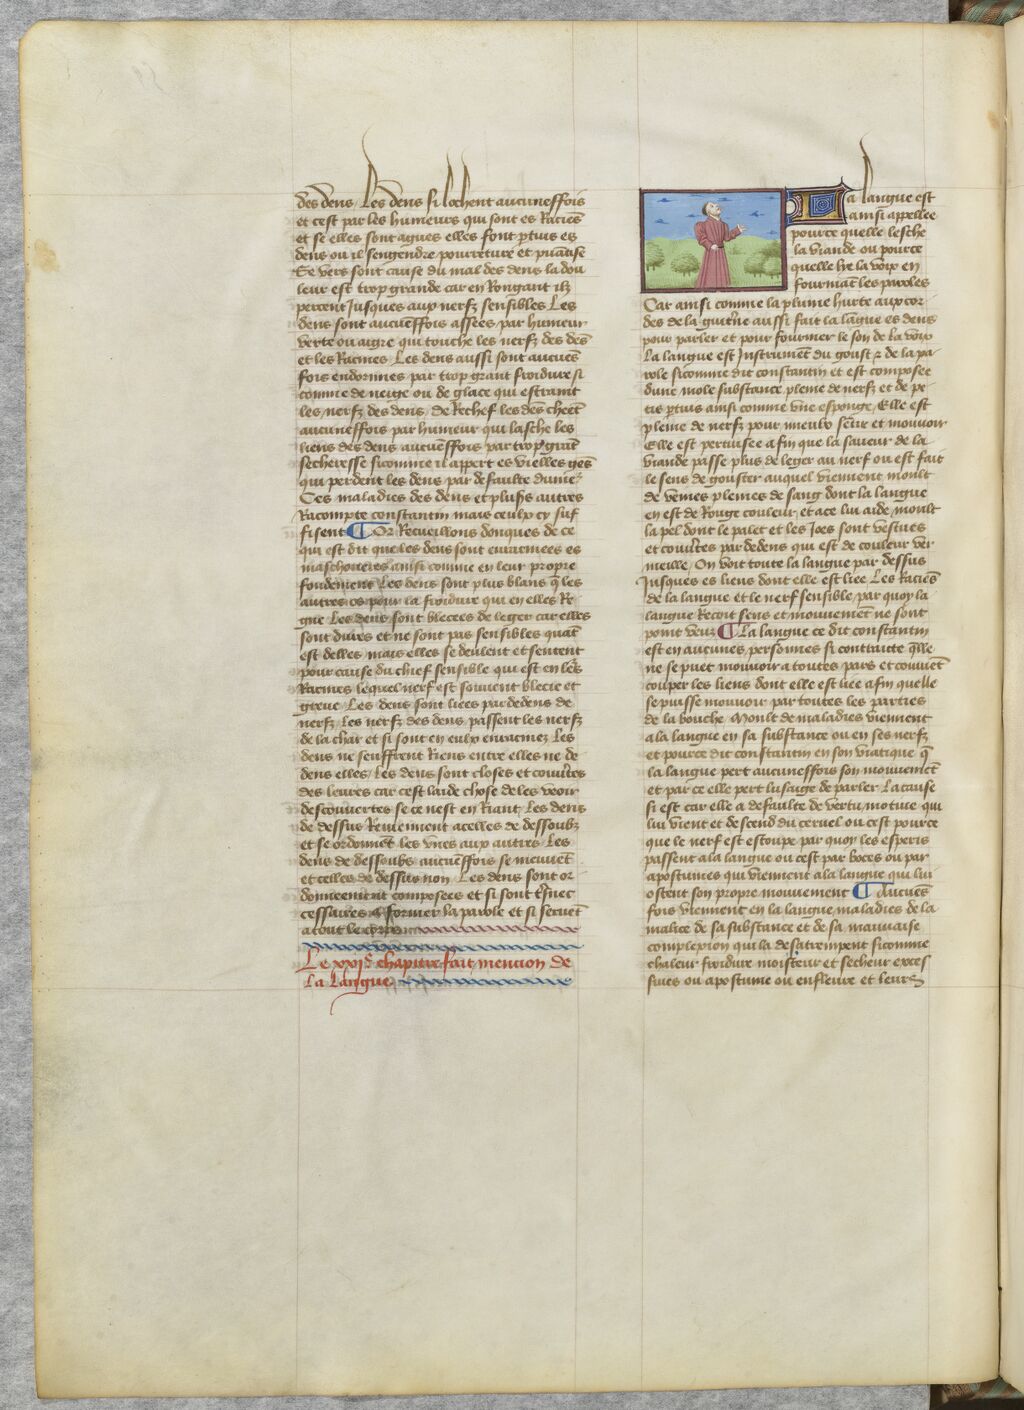 des dens / Les dens si lochent aucuneffois
et cest par les humeurs qui sont es Raciēs
et se elles sont agues elles font ꝑtuis es
dens ou il sengendre pourreture et puātise
Se vers sont cause du mal des dens la dou
leur est trop grande car en Rongant ilz
percent Jusques aux nerfz sensibles Les
dens sont aucuēffois assees par humeur
verte ou aigre qui touche les nerfz des dēs
et les Racines Les dens aussi sont aucuēs
fois endormies par trop grant froidure si
comme de neige ou de glace qui estraint
les nerfz des dens / De Rechef les dēs cheēt
aucuneffois par humeur qui lasche les
liens des dens aucuēffois par trop grāt
secheresse sicomme il appert es vielles gēs
qui perdent les dens par defaulte dumeᵉ
Ces maladies des dens et pluss̄ autres
Racompte constantin mais ceulx cy suf
fisent ¶ Or Recueillons donques de ce
qui est dit que les dens sont enracinees es
maschoueres ainsi comme en leur propre
fondement Les dens sont plus blans q̄ les
autres os pour la froidure qui en elles Re
gne Les dens sont blecees de leger car elles
sont dures et ne sont pas sensibles quāt
est delles mais elles se deulent et sentent
pour cause du chief sensible qui est en lēs
Racines lequel nerf est souuent blecie et
greue Les dens sont liees par dedens de
nerfz Les nerfz des dens passent les nerfz
de la char et si sont en eulx enracinez Les
dens ne seuffrent Riens entre elles ne de
dens elles / Les dens sont closes et couūtes
des leures car cest laide chose de les veoir
descouuertes se ce nest en Riant Les dens
de dessus Reuiennent a celles de dessoubz
et se ordonnēt les vnes aux autres Les
dens de dessoubs aucuēffois se meuuēt
et celles de dessus non Les dens sont or
donneement composees et si sont tᵉs nec
cessaires a former la parole et si seruēt
a tout le corps
Le xxjᵉ chapitre fait mencion de
la langue
La langue est
ainsi appellee
pource quelle lesche
la viande ou pource
quelle lye la voix en
fourmant les paroles
Car ainsi comme la plume hurte aux cor
des de la guit̄ne aussi fait la lāgue es dens
pour parler et pour fourmer le son de la voix
La langue est Jnstrumēt du goust ⁊ de la pa
role sicomme dit constantin et est composee
dune mole substance pleine de nerfz et de pe
tis ꝑtuis ainsi comme vne esponge / Elle est
pleine de nerfz pour mieulx sētir et mouuoir
Elle est pertuisee afin que la saueur de la
viande passe plus de leger au nerf ou est fait
le sens de gouster auquel viennent moult
de veines pleines de sang dont la langue
en est de Rouge couleur et a ce lui aide moult
la pel dont le palet et les Joes sont vestues
et couūtes par dedens qui est de couleur ver
meille / On voit toute la langue par dessus
Jusques es liens dont elle est liee Les Raciēs
de la langue et le nerf sensible par quoy la
langue Recoit sens et mouuemēt ne sont
point veuz ¶ La langue ce dit constantin
est en aucunes personnes si contraicte q̄lle
ne se puet mouuoir a toutes pars et couuiēt
couper les liens dont elle est liee afin quelle
se puisse mouuoir par toutes les parties
de la bouche Moult de maladies viennent
a la langue en sa substance ou en ses nerfz
et pource dit constantin en son viatique q̄
la langue pert aucuneffois son mouuemēt
et par ce elle pert lusaige de parler La cause
si est car elle a defaulte de vertu motiue qui
lui vient et descend du ceruel ou cest pource
que le nerf est estoupe par quoy les esperis
passent a la langue ou cest par boces ou par
apostumes qui viennent a la langue qui lui
ostent son propre mouuement ¶ Aucuēs
fois viennent en la langue maladies de la
malice de sa substance et de sa mauuaise
complexion qui la desatrempent sicomme
chaleur froidure moisteur et secheur exces
siues ou apostume ou enfleure et leurs